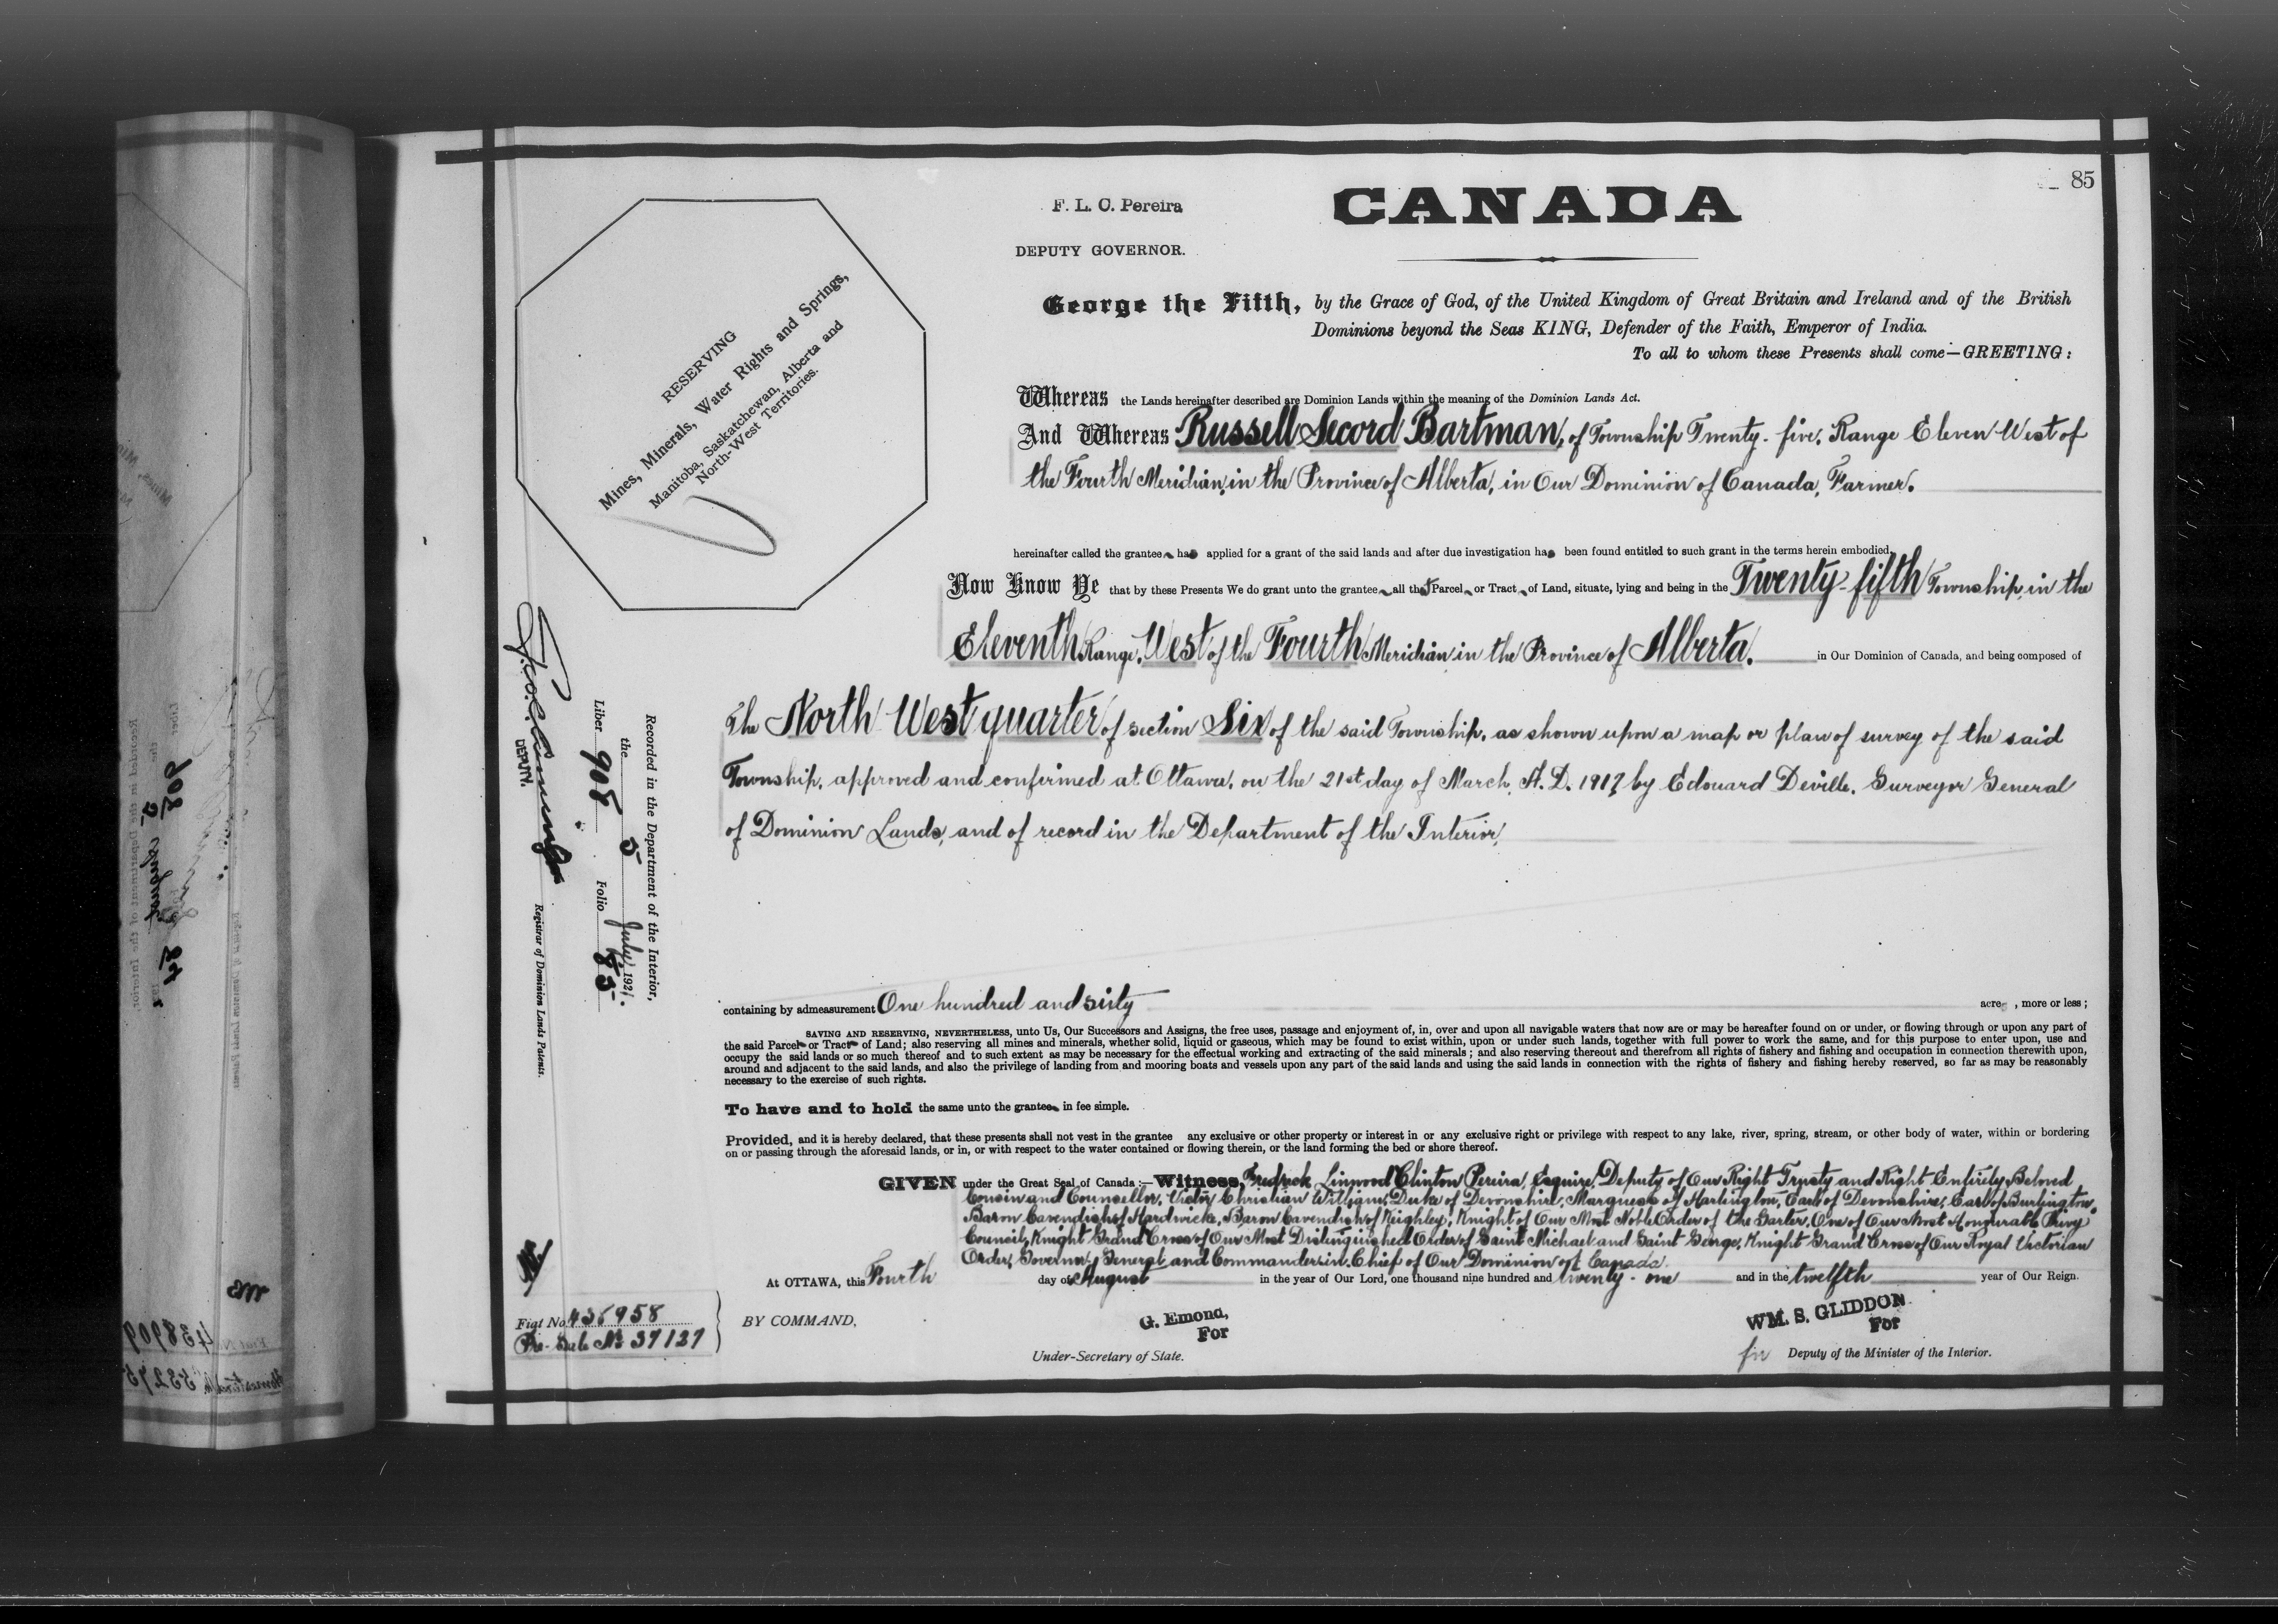 85
F. L. C. Pereira
CANADA
DEPUTY GOVERNOR.
RESERVING
Mines, Minerals, Water Rights and Springs,
Manitoba, Saskatchewan, Alberta and
North-West Territories.
George the Fifth, by the Grace of God, of the United Kingdom of Great Britain and Ireland and of the British
Dominions beyond the Seas KING, Defender of the Faith, Emperor of India.
To all to whom these Presents shall come—GREETING:
Whereas the Lands hereinafter described are Dominion Lands within the meaning of the Dominion Lands Act.
And Whereas Russell Secord Bartman, of Township Twenty-five, Range Eleven West of
the Fourth Meridian, in the Province of Alberta, in Our Dominion of Canada, Farmer.
hereinafter called the grantee has applied for a grant of the said lands and after due investigation has been found entitled to such grant in the terms herein embodied,
Now Know Ye that by these Presents We do grant unto the grantee all that Parcel or Tract of Land, situate, lying and being in the Twenty-fifth Township, in the
Eleventh Range, West of the Fourth Meridian in the Province of Alberta. in Our Dominion of Canada, and being composed of
The North West quarter of section Six of the said Township, as shown upon a map or plan of survey of the said
Township, approved and confirmed at Ottawa, on the 21st day of March, A.D. 1917, by Edouard Deville, Surveyor General
of Dominion Lands, and of record in the Department of the Interior,
containing by admeasurement One hundred and sixty acres, more or less;
SAVING AND RESERVING, NEVERTHELESS, unto Us, Our Successors and Assigns, the free uses, passage and enjoyment of, in, over and upon all navigable waters that now are or may be hereafter found on or under, or flowing through or upon any part of
the said Parcel or Tract of Land; also reserving all mines and minerals, whether solid, liquid or gaseous, which may be found to exist within, upon or under such lands, together with full power to work the same, and for this purpose to enter upon, use and
occupy the said lands or so much thereof and to such extent as may be necessary for the effectual working and extracting of the said minerals; and also reserving thereout and therefrom all rights of fishery and fishing and occupation in connection therewith upon,
around and adjacent to the said lands, and also the privilege of landing from and mooring boats and vessels upon any part of the said lands and using the said lands in connection with the rights of fishery and fishing hereby reserved, so far as may be reasonably
necessary to the exercise of such rights.
To have and to hold the same unto the grantee in fee simple.
Provided, and it is hereby declared, that these presents shall not vest in the grantee any exclusive or other property or interest in or any exclusive right or privilege with respect to any lake, river, spring, stream, or other body of water, within or bordering
on or passing through the aforesaid lands, or in, or with respect to the water contained or flowing therein, or the land forming the bed or shore thereof.
GIVEN under the Great Seal of Canada:—Witness, Fredrick Linwood Clinton Pereira, Esquire, Deputy of Our Right Trusty and Right Entirely Beloved
Cousin and Counsellor, Victor Christian William, Duke of Devonshire, Marquess of Hartington, Earl of Devonshire, Earl of Burlington,
Baron Cavendish of Hardwicke, Baron Cavendish of Keighley, Knight of Our Most Noble Order of the Garter, One of Our Most Honourable Privy
Council, Knight Grand Cross of Our Most Distinguished Order of Saint Michael and Saint George, Knight Grand Cross of Our Royal Victorian
Order, Governor General and Commander in Chief of Our Dominion of Canada.
At OTTAWA, this Fourth day of August in the year of Our Lord, one thousand nine hundred and twenty-one and in the twelfth year of Our Reign.
BY COMMAND,
G. Emond,
For
Under-Secretary of State.
WM. S. GLIDDON
For
for Deputy of the Minister of the Interior.
Recorded in the Department of the Interior,
the 5 July 1921.
Liber 908 Folio 85
DEPUTY. Registrar of Dominion Lands Patents.
Fiat No. 438958
Pre-Sale No. 37127